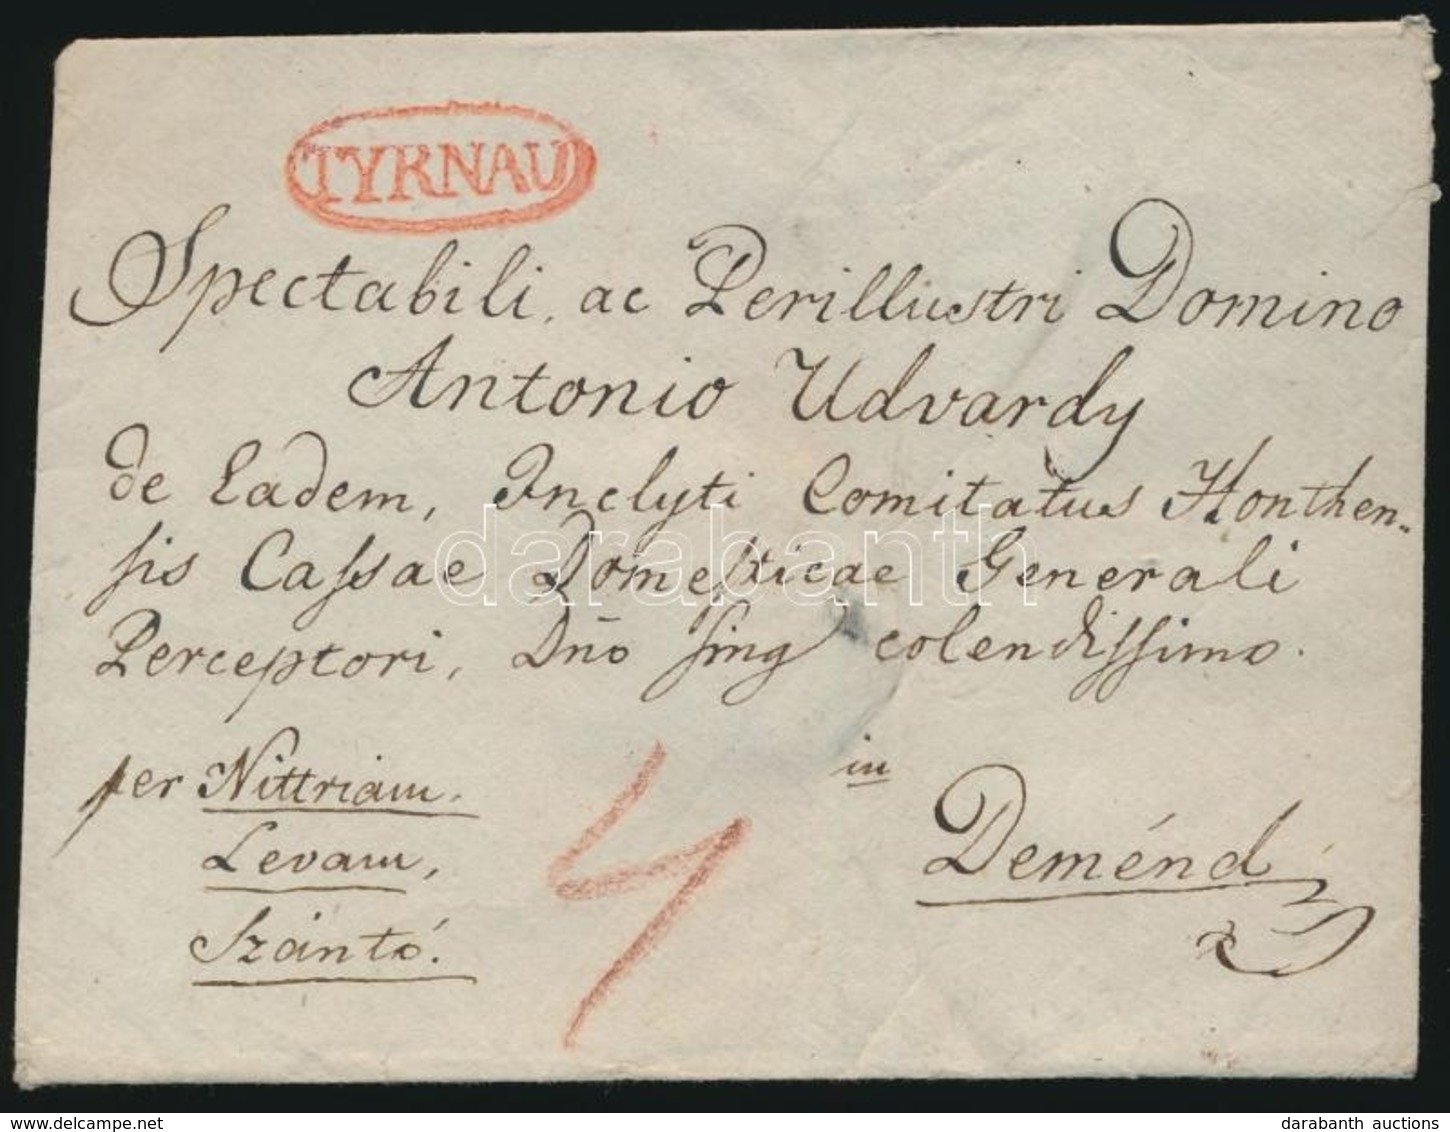 TYRNAU
Spectabili, ac Perillustri Domino
Antonio Udvardy
de Eadem, Inclyti Comitatus Honthen-
sis Cassae Domesticae Generali
Perceptori, Dño sing colendissimo.
per Nittriam.
Levam,
Szántó.
in
Deménd
4
darabanth
www.delcampe.net
darabanth auctions